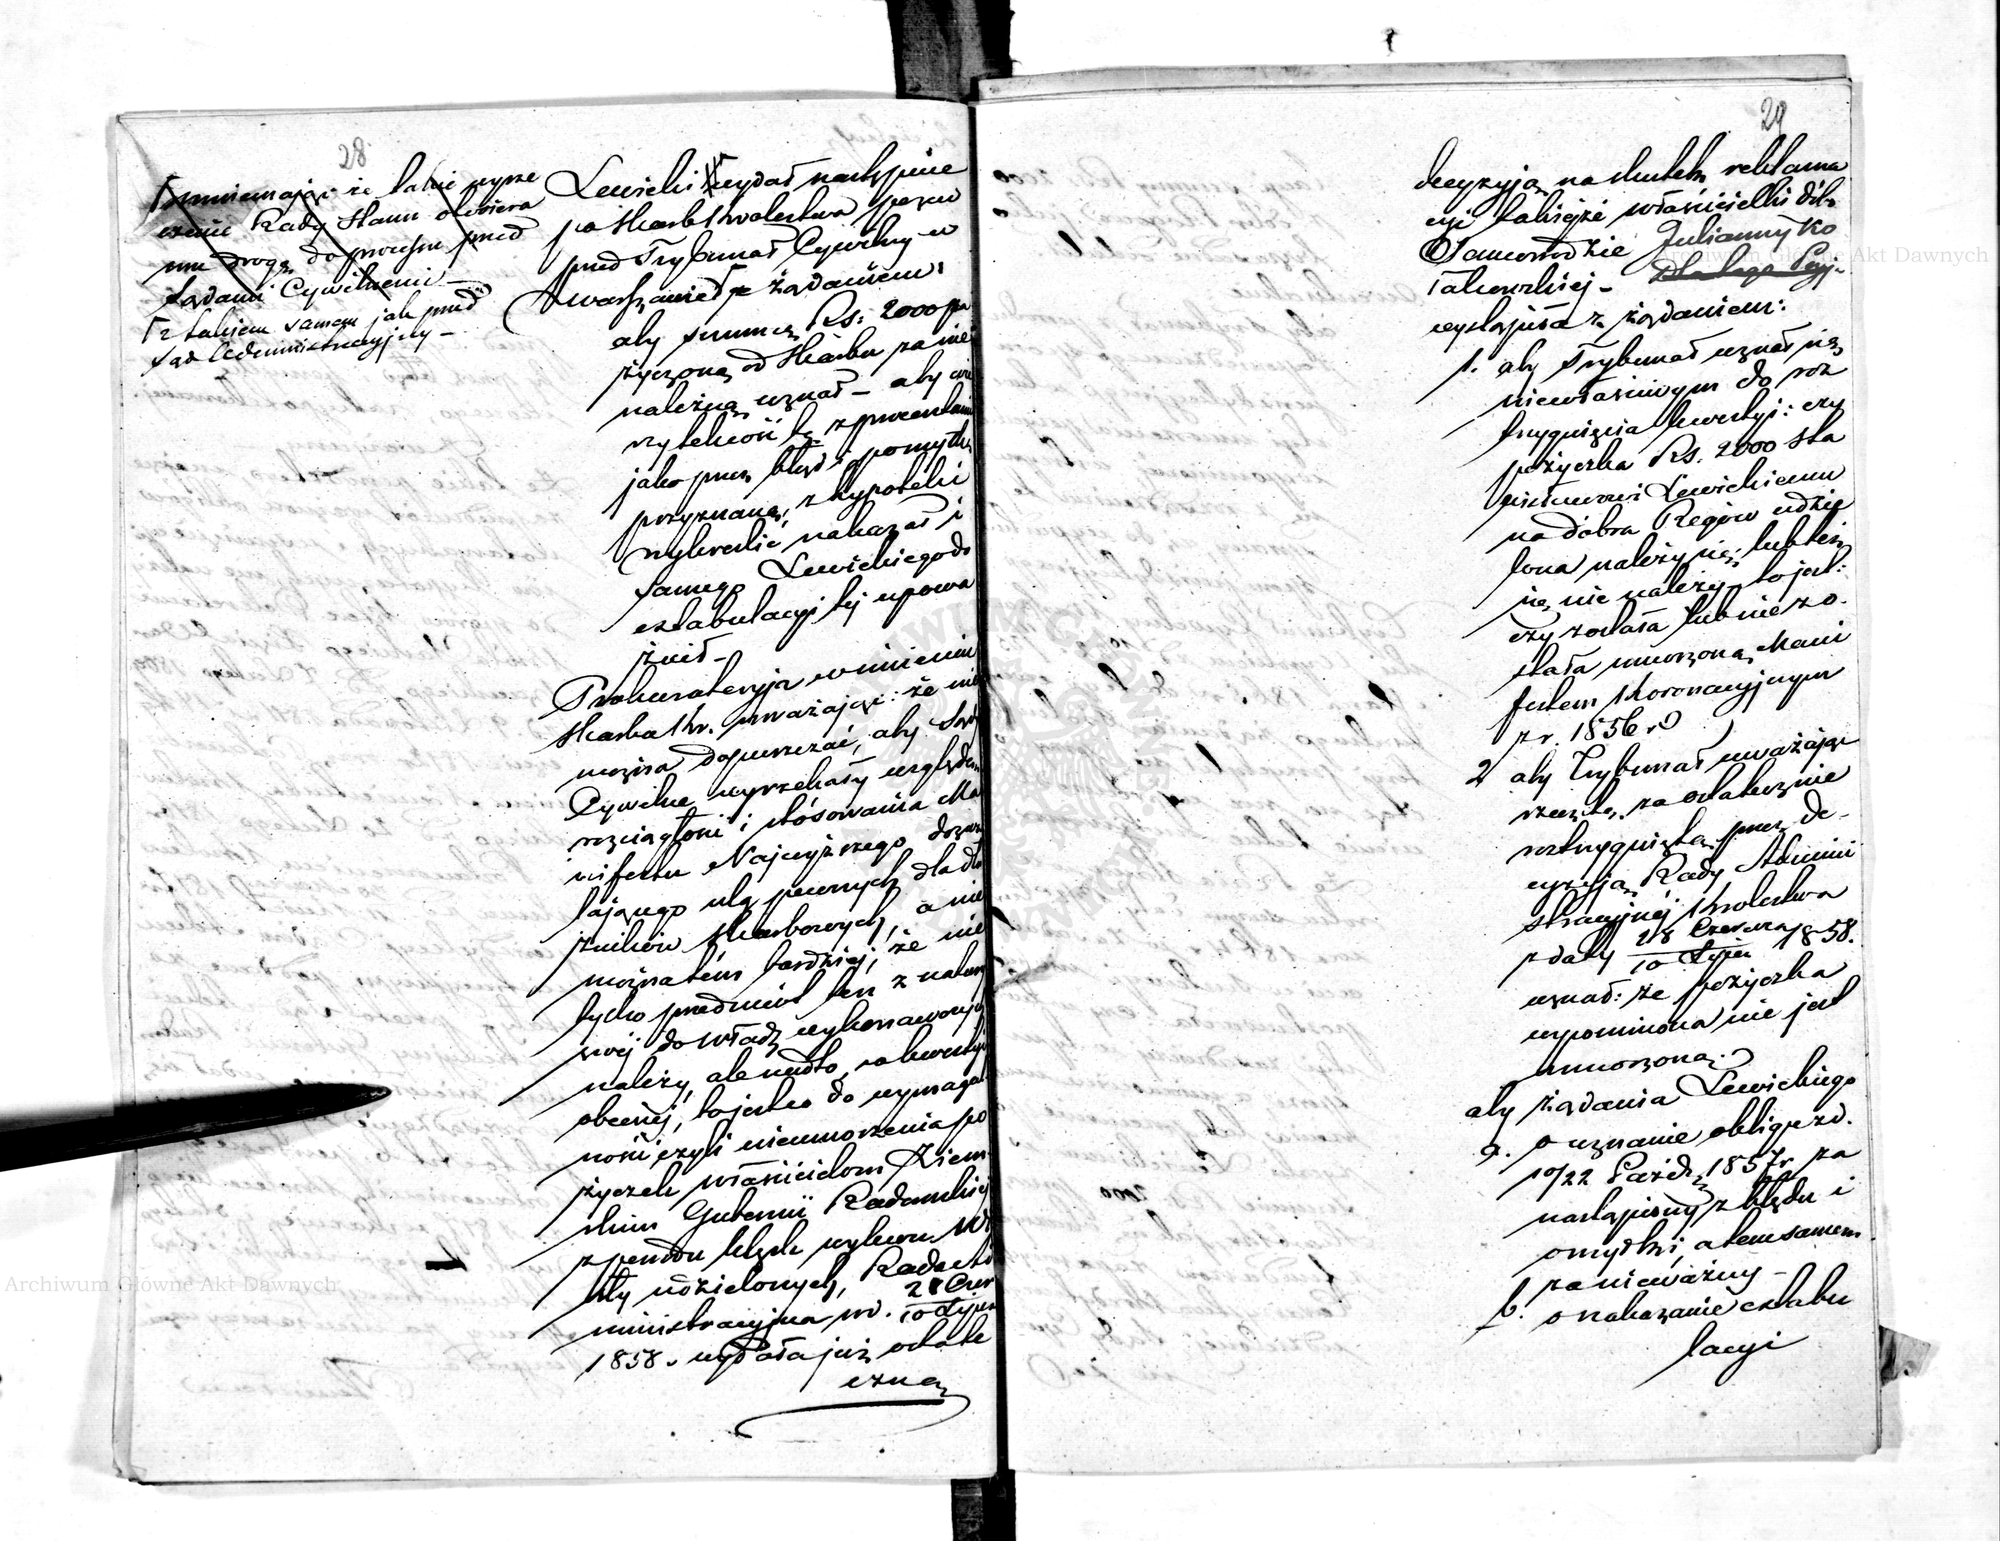 28
mniemając że takie wyrze
czenie Rady Stanu otwiera
mu drogę do processu przed
Sądami Cywilnemi —
z takiem samem jak przed
Sąd Administracyjny —
Lewicki wydał następnie
po Skarb Królestwa pozew
przed Trybunał Cywilny w
Warszawie z żądaniem:
aby summę Rs: 2000 po
życzoną od Skarbu za nie
należną uznał — aby wie
rzytelność tę z procentami
jako przez błąd i pomyłkę
przyznaną, z hypoteki
wykreślić nakazał i
samego Lewickiego do
extabulacyi tej upowa
żnił —
Prokuratoryja w imieniu
Skarbu Kr. uważając: że nie
można dopuszczać, aby Sądy
Cywilne wyrzekały względem
rozciągłości i stósowania Ma
nifestu Najwyższego dozwa
lającego ulg pewnych dla dłu
żników skarbowych, a nie
można tém bardziej, że nie
tylko przedmiot ten z natury
swej do władz wykonawczych
należy, ale nadto, w kwestyi
obecnej, to jest co do wymagal
ności czyli nieumorzenia po
życzek właścicielom Ziem
skim Gubernii Radomskiej
z powodu klęsk wylewu Wi
sły udzielonych, Rada Ad
ministracyjna w d. 28 Czer
10 Lipca
1858. wydała już ostate
czną
29
decyzyją na skutek reklama
cyi takiejże właścicielki dóbr
Samowodzie Julianny Ko
takowskiej —
wystąpiła z żądaniem:
1. aby Trybunał uznał się
niewłaściwym do roz
trzygnięcia kwestyi: czy
pożyczka Rs. 2000 Sta
nisławowi Lewickiemu
na dobra Regów udzie
lona należy się, lub też
się nie należy to jest:
czy została lub nie zo
stała umorzoną Mani
festem Koronacyjnym
z r. 1856 r
2 aby Trybunał uważając
rzecz tę, za ostatecznie
roztrzygniętą przez De-
cyzyją Rady Admini
stracyjnej Królestwa
z daty 28 Czerwca 1858.
10 Lipca
uznał: że pożyczka
wspomniona nie jest
umorzoną
aby żądania Lewickiego
a. o uznanie obligu z d.
10/22 Paźdz. 1857 r. za
nastąpiony z błędu i
omyłki, a tem samem
za nieważny —
b. o nakazanie extabu
lacyi
Archiwum Główne Akt Dawnych
Archiwum Główne Akt Dawnych